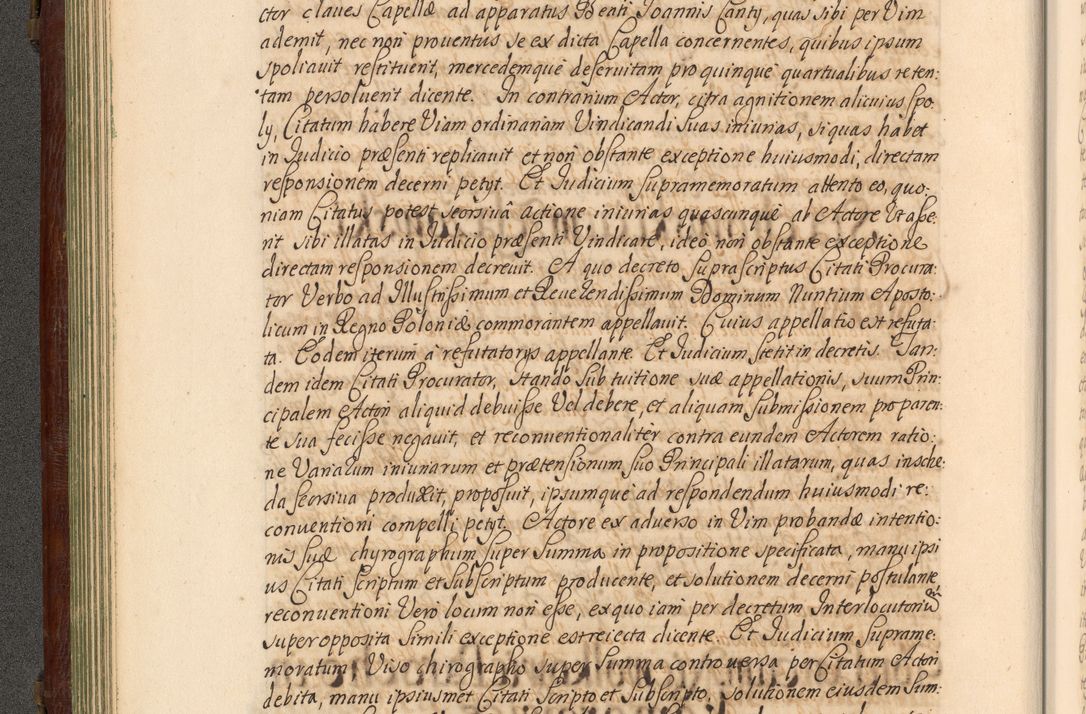 ctor claues Capellæ ad apparatus Beati Joannis Canty, quas sibi per Vim
ademit, nec non prouentus se ex dicta Capella concernentes, quibus ipsum
spoliauit restituent, mercedemque deseruitam pro quinque quartualibus reten:
tam persoluent dicente. In contrarium Actor, citra agnitionem alicuius spo:
ly, Citatum habere Viam ordinariam Vindicandi suas iniurias, si quas habet
in Judicio præsenti replicauit et non obstante exceptione huiusmodi, directam
responsionem decerni petyt. Et Judicium supramemoratum attento eo, quo:
niam Citatus potest seorsiuâ actione iniurias quascunque ab Actore Vt asse:
rit sibi illatas in Judicio præsenti Vindicare, ideo non obstante exceptione
directam responsionem decreuit. A quo decreto suprascriptus Citati Procura:
tor Verbo ad Illustrissimum et Reuerendissimum Dominum Nuntium Aposto:
licum in Regno Poloniæ commorantem appellauit. Cuius appellatio est refuta:
ta. Eodem iterum a refutatorys appellante. Et Judicium stetit in decretis. Tan:
dem idem Citati Procurator, stando sub tuitione suæ appellationis, suum Prin:
cipalem Actori aliquid debuisse Vel debere, et aliquam submissionem pro paren:
te suo fecisse negauit, et reconuentionaliter contra eundem Actorem ratio:
ne Variarum iniuriarum et prætensionum suo Principali illatarum, quas in sche:
da seorsiua produxit, proposuit, ipsumque ad respondendum huiusmodi re:
conuentioni compelli petyt. Actore ex aduerso in Vim probandæ intentio:
nis suæ chyrographum super summa in propositione specificata, manu ipsi
us Citati scriptum et subscriptum producente, et solutionem decerni postulante
reconuentioni Vero locum non esse, ex quo iam per decretum Interlocutoriũ
super opposita simili exceptione est reiecta dicente. Et Judicium suprame:
moratum Viso chirographo super summa controuersa per Citatum Actori
debita, manu ipsiusmet Citati scripto et subscripto, solutionem eiusdem sum: